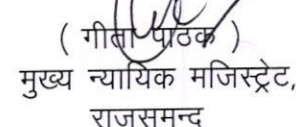 ( गीता पाठक )
मुख्य न्यायिक मजिस्ट्रेट,
राजसमन्द